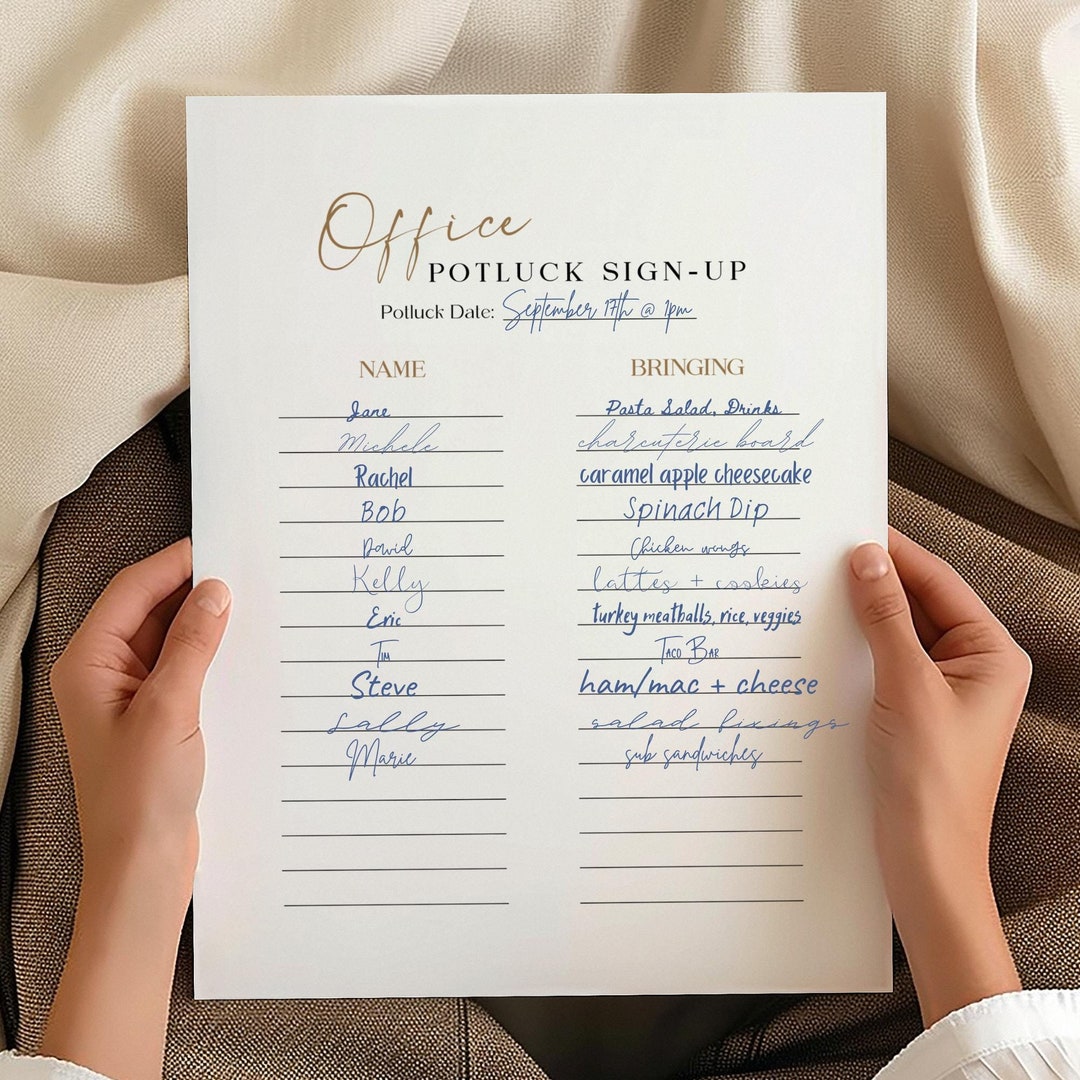 Office
POTLUCK SIGN-UP
Potluck Date: September 17th @ 1pm
NAME BRINGING
Jane Pasta Salad, Drinks
Michele charcuterie board
Rachel caramel apple cheesecake
Bob Spinach Dip
David Chicken wongs
Kelly lattes + cookies
Eric turkey meatballs, rice, veggies
Tim Taco Bar
Steve ham/mac + cheese
Lally salad fixings
Marie sub sandwiches